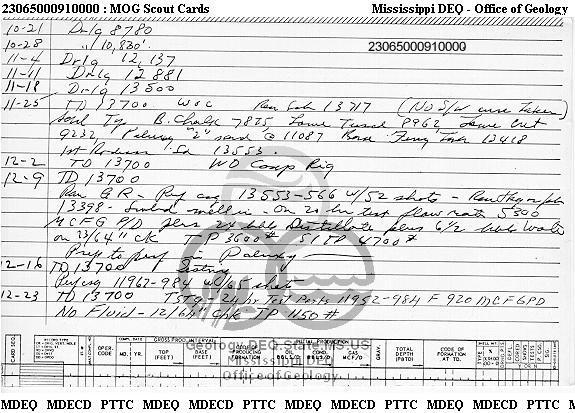 23065000910000 : MOG Scout Cards Mississippi DEQ - Office of Geology
10-21 Drlg 8780
10-28 " 10,830'. 23065000910000
11-4 Drlg 12,137
11-11 Drlg 12881
11-18 Drlg 13500
11-25 TD 13700 WOC Ran Sch 13717 (No S/W were taken)
B. Chalk 7875 Lower Tusc 8962 Lower Cret
9232 Paluxy "2" sand @ 11087 Base Ferry Lake 12418
1st Rodessa Sd 13553.
12-2 TD 13700 WO Comp Rig
12-9 TD 13700
Ran GR - Perf csg 13553-566 w/52 shots - Ran
13398 - On 20 hr test flow rate 5300
MCFG P/D plus 24 bbls Distillate plus 6 1/2 bbls Water
on 23/64" ck TP 3600# SITP 4700#
Prep to perf in Paluxy
12-16 TD 13700 Testing
Perf csg 11962-984 w/ shots
12-23 TD 13700 TSTG - 24 hr Test Perfs 11952-984 F 920 MCFGPD
No Fluid - 12/64" Chk TP 1150#
CARD SEQ. OPER. CODE COMPL. DATE MO. YR. GROSS PROD. INTERVAL TOP (FEET) BASE (FEET) PRODUCING FORMATION INITIAL PRODUCTION OIL BBLS/D COND. BBLS/D GAS MCF/D GRAV. TOTAL DEPTH (PBTD) CODE OF FORMATION AT TD. Y OR N
Geology.DEQ.State.MS.US
Mississippi
Office of Geology
MDEQ MDECD PTTC MDEQ MDECD PTTC MDEQ MDECD PTTC MDEQ MDECD PTTC M